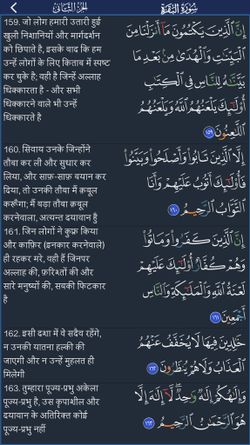 سُورَةُ البَقَرَةِ
الجُزْءُ الثَّانِي
159. जो लोग हमारी उतारी हुई
खुली निशानियों और मार्गदर्शन
को छिपाते है, इसके बाद कि हम
उन्हें लोगों के लिए किताब में स्पष्ट
कर चुके है; वही है जिन्हें अल्लाह
धिक्कारता है - और सभी
धिक्कारने वाले भी उन्हें
धिक्कारते है
إِنَّ الَّذِينَ يَكْتُمُونَ مَا أَنْزَلْنَا مِنَ
الْبَيِّنَاتِ وَالْهُدَىٰ مِنْ بَعْدِ مَا
بَيَّنَّاهُ لِلنَّاسِ فِي الْكِتَابِ
أُولَٰئِكَ يَلْعَنُهُمُ اللَّهُ وَيَلْعَنُهُمُ
اللَّاعِنُونَ ١٥٩
160. सिवाय उनके जिन्होंने
तौबा कर ली और सुधार कर
लिया, और साफ़-साफ़ बयान कर
दिया, तो उनकी तौबा मैं क़बूल
करूँगा; मैं बड़ा तौबा क़बूल
करनेवाला, अत्यन्त दयावान हूँ
إِلَّا الَّذِينَ تَابُوا وَأَصْلَحُوا وَبَيَّنُوا
فَأُولَٰئِكَ أَتُوبُ عَلَيْهِمْ وَأَنَا
التَّوَّابُ الرَّحِيمُ ١٦٠
161. जिन लोगों ने कुफ़्र किया
और काफ़िर (इनकार करनेवाले)
ही रहकर मरे, वही हैं जिनपर
अल्लाह की, फ़रिश्तों की और
सारे मनुष्यों की, सबकी फिटकार
है
إِنَّ الَّذِينَ كَفَرُوا وَمَاتُوا
وَهُمْ كُفَّارٌ أُولَٰئِكَ عَلَيْهِمْ
لَعْنَةُ اللَّهِ وَالْمَلَائِكَةِ وَالنَّاسِ
أَجْمَعِينَ ١٦١
162. इसी दशा में वे सदैव रहेंगे,
न उनकी यातना हल्की की
जाएगी और न उन्हें मुहलत ही
मिलेगी
خَالِدِينَ فِيهَا لَا يُخَفَّفُ عَنْهُمُ
الْعَذَابُ وَلَا هُمْ يُنْظَرُونَ ١٦٢
163. तुम्हारा पूज्य-प्रभु अकेला
पूज्य-प्रभु है, उस कृपाशील और
दयावान के अतिरिक्त कोई
पूज्य-प्रभु नहीं
وَإِلَٰهُكُمْ إِلَٰهٌ وَاحِدٌ لَا إِلَٰهَ إِلَّا
هُوَ الرَّحْمَٰنُ الرَّحِيمُ ١٦٣